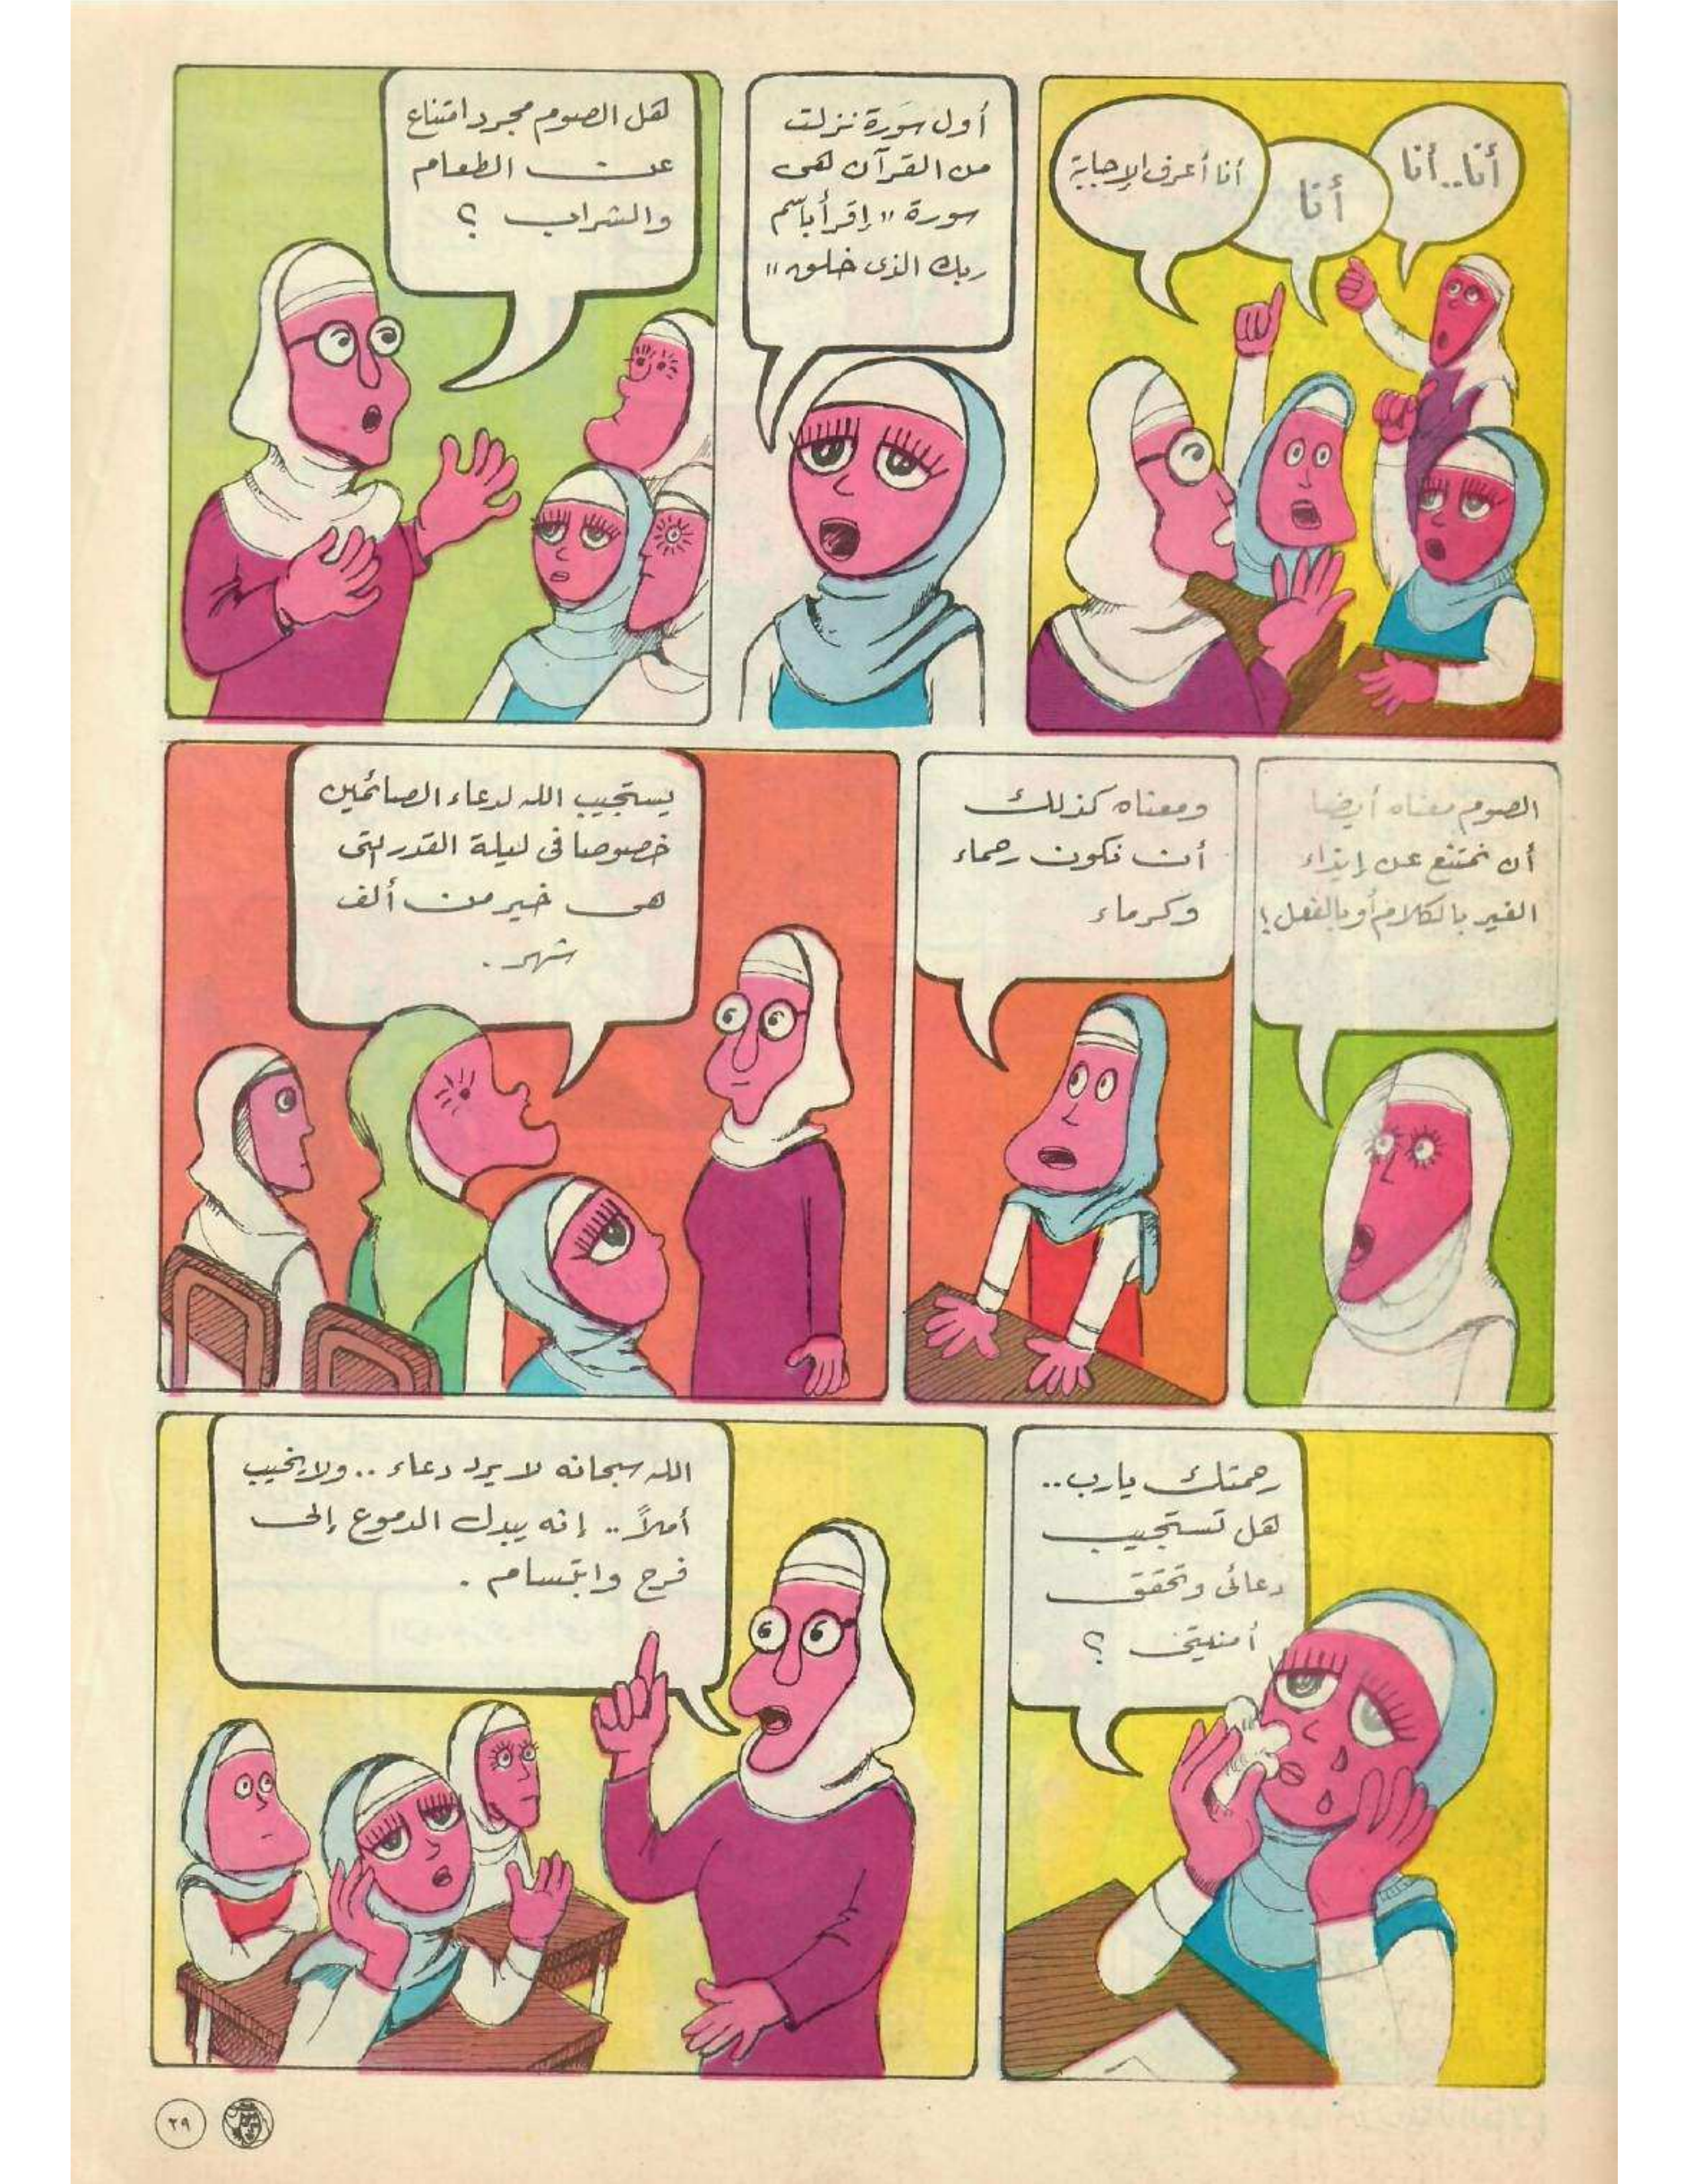 أنا..أنا
أنا
أنا أعرف الإجابة
أول سورة نزلت
من القرآن هى
سورة "إقرأ باسم
ربك الذى خلق"
هل الصوم مجرد امتناع
عن الطعام
والشراب ؟
الصوم معناه أيضا
أن نمتنع عن إيذاء
الغير بالكلام أو بالفعل!
ومعناه كذلك
أن نكون رحماء
وكرماء
يستجيب الله لدعاء الصائمين
خصوصا فى ليلة القدر التى
هى خير من ألف
شهر .
رحمتك يارب..
هل تستجيب
دعائى وتحقق
أمنيتى ؟
الله سبحانه لا يرد دعاء .. ولا يخيب
أملاً .. إنه يبدل الدموع إلى
فرح وابتسام .
٢٩